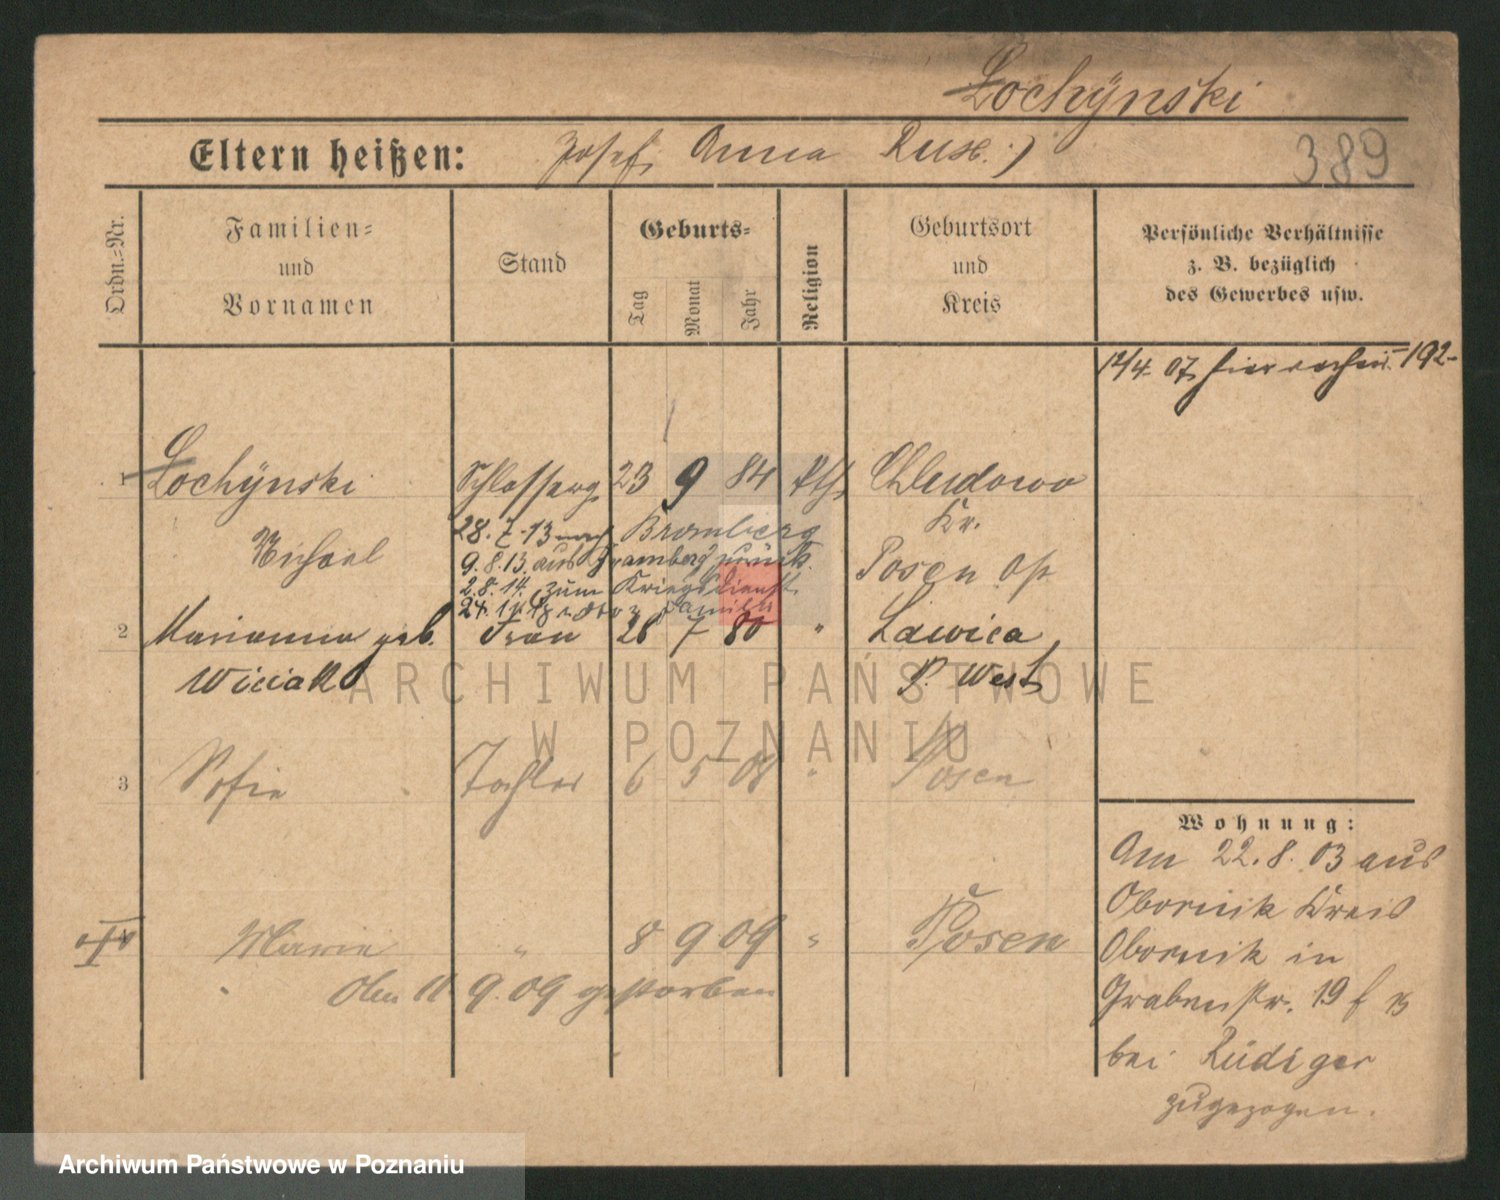 Łochÿnski
Eltern heißen: Josef, Anna Rux.)
389
Ordn.-Nr.
Familien-
und
Vornamen
Stand
Geburts-
Tag
Monat
Jahr
Religion
Geburtsort
und
Kreis
Persönliche Verhältnisse
z. B. bezüglich
des Gewerbes usw.
12/4. 07 192
1 Łochÿnski Schlosserg. 23 9 84 kth Chludowo
Kr.
Michael
Posen Ost
28. 7. 13 nach Bromberg
9. 8. 13. aus Bromberg zurück.
2. 8. 14. zum Kriegsdienst
Familie
2 Marianna geb. Frau 28 7 80 " Lawica
Wiciak P. West
3 Sofie Tochter 6 5 08 " Posen
4 Marie " 8 9 09 " Posen
Am 11. 9. 09 gestorben
Wohnung:
Am 22. 8. 03 aus
Obornik Kreis
Obornik in
Grabenstr. 19
bei Rüdiger
zugezogen.
ARCHIWUM PAŃSTWOWE
W POZNANIU
Archiwum Państwowe w Poznaniu